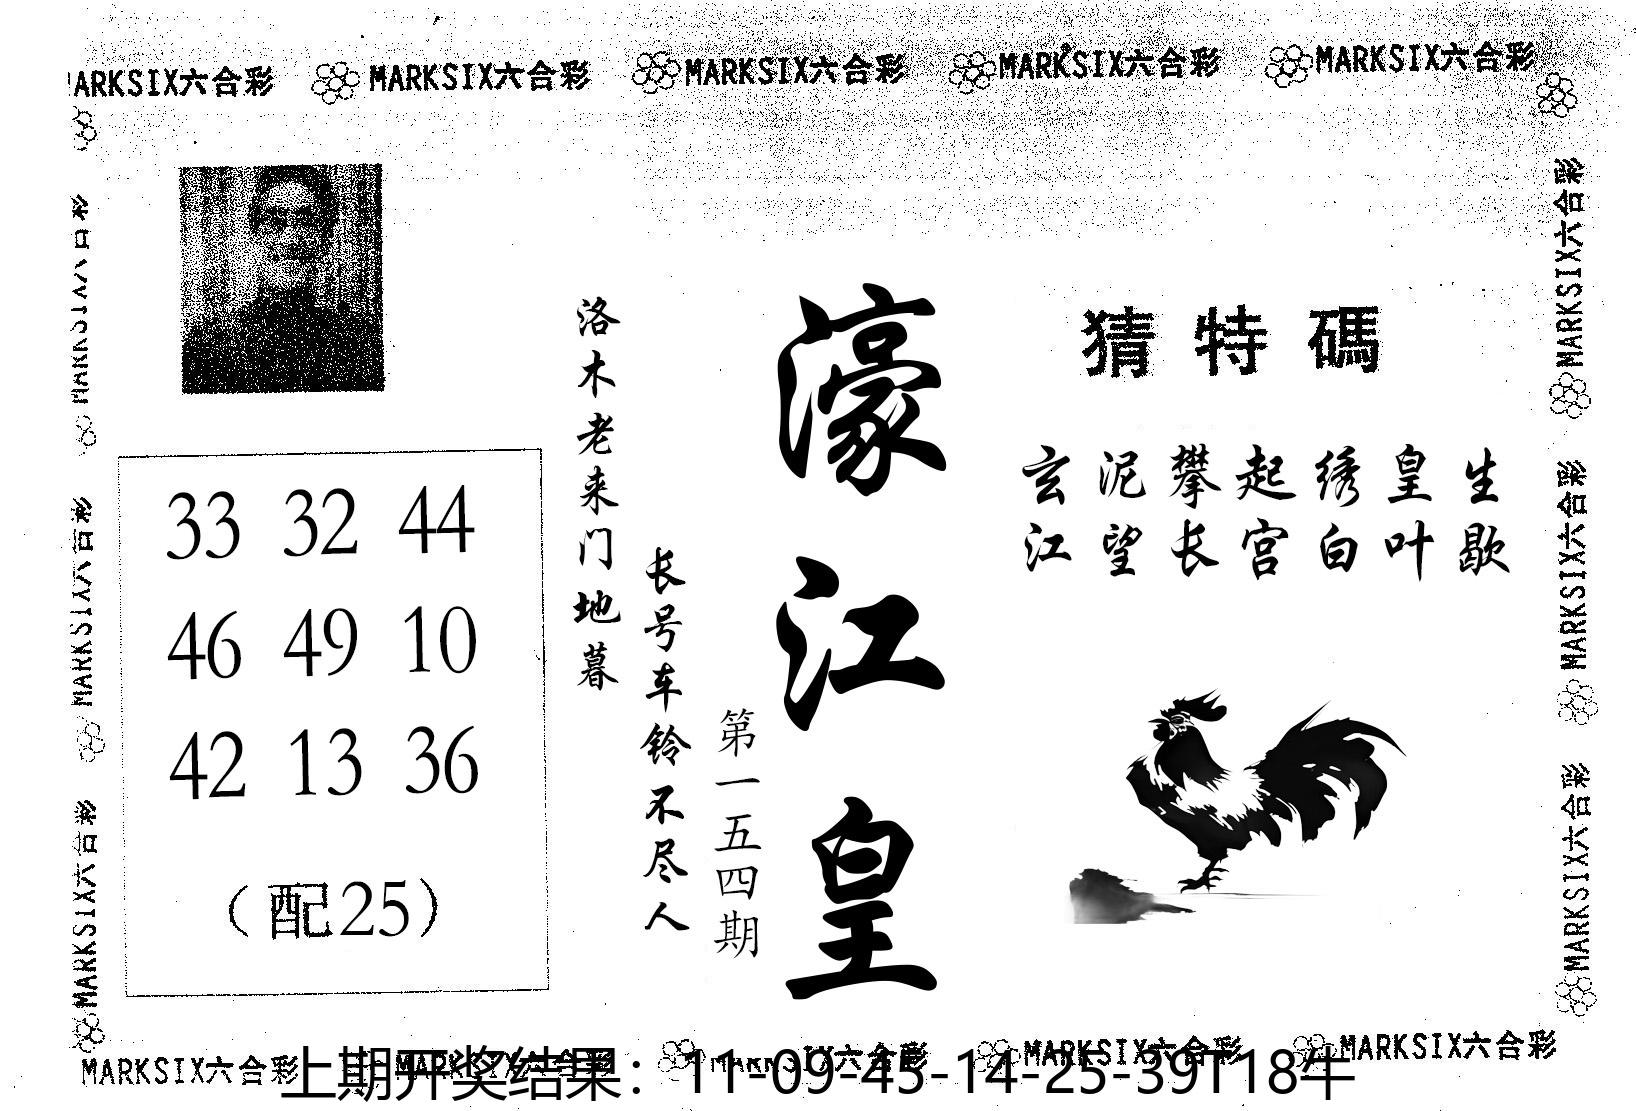 MARKSIX六合彩 MARKSIX六合彩 MARKSIX六合彩 MARKSIX六合彩 MARKSIX六合彩
猜特碼
玄泥攀起绣皇生
江望长宫白叶歇
濠江皇
第一五四期
洛木老来门地暮
长号车铃不尽人
33 32 44
46 49 10
42 13 36
（配25）
MARKSIX六合彩
MARKSIX六合彩
MARKSIX六合彩
MARKSIX六合彩
MARKSIX六合彩
MARKSIX六合彩
MARKSIX六合彩 MARKSIX六合彩 MARKSIX六合彩 MARKSIX六合彩 MARKSIX六合彩
上期开奖结果：11-09-45-14-25-39T18牛